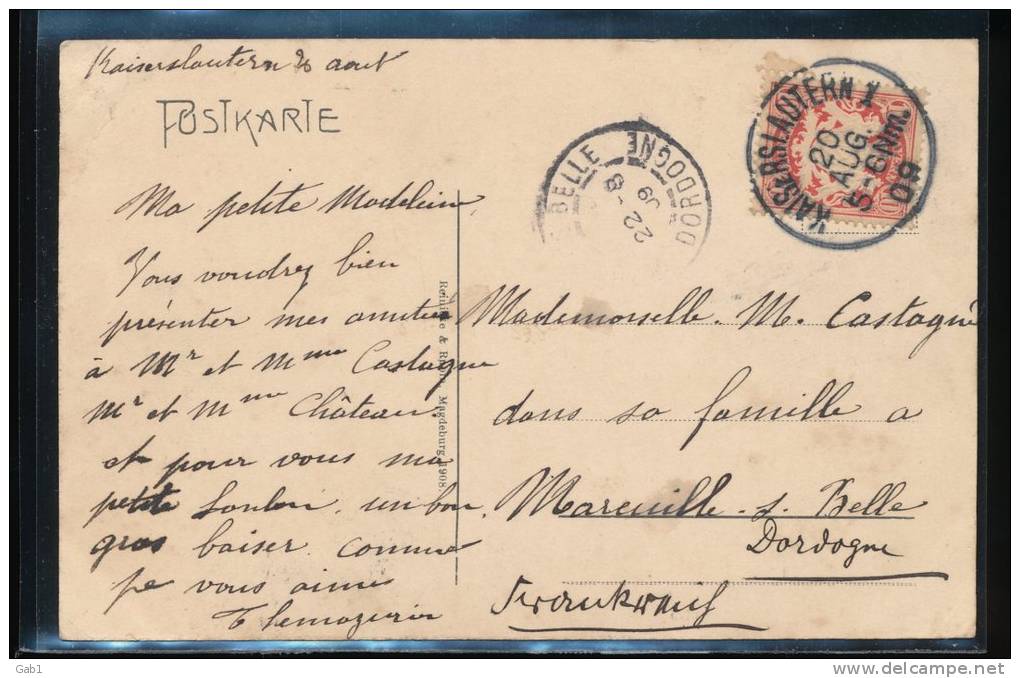 Kaiserslautern 20 aout
POSTKARTE
KAISERSLAUTERN 1
20
AUG.
5-6Nm.
09
BELLE DORDOGNE
8 -
22
09
10
Ma petite Madeleine
Vous voudrez bien
présenter mes amitiés
à Mr et Mme Castagne
Mr et Mme Château
et pour vous ma
petite un bon
gros baiser comme
je vous aime
Reinicke & Rubin, Magdeburg 1908
Mademoiselle. M. Castagné
dans sa famille a
Mareuille. s. Belle
Dordogne
Frankreich
Gab1
delcampe.net